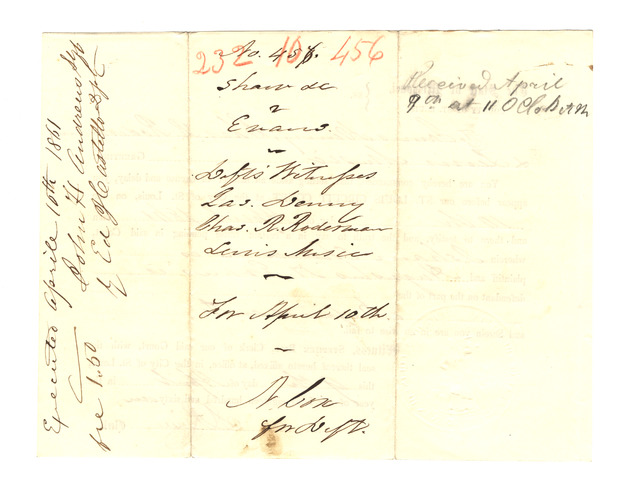 Executed Aprile 10th 1861
John H Andrews Shff
fee 1.50
232 10 456
No. 456.
Shaw &c
v
Evans
Defts Witnesses
Jas. Denny
Chas. R. Rodesman
Lewis Music
For April 10th.
N Cox
for Deft.
Received April
9th at 11 OClo